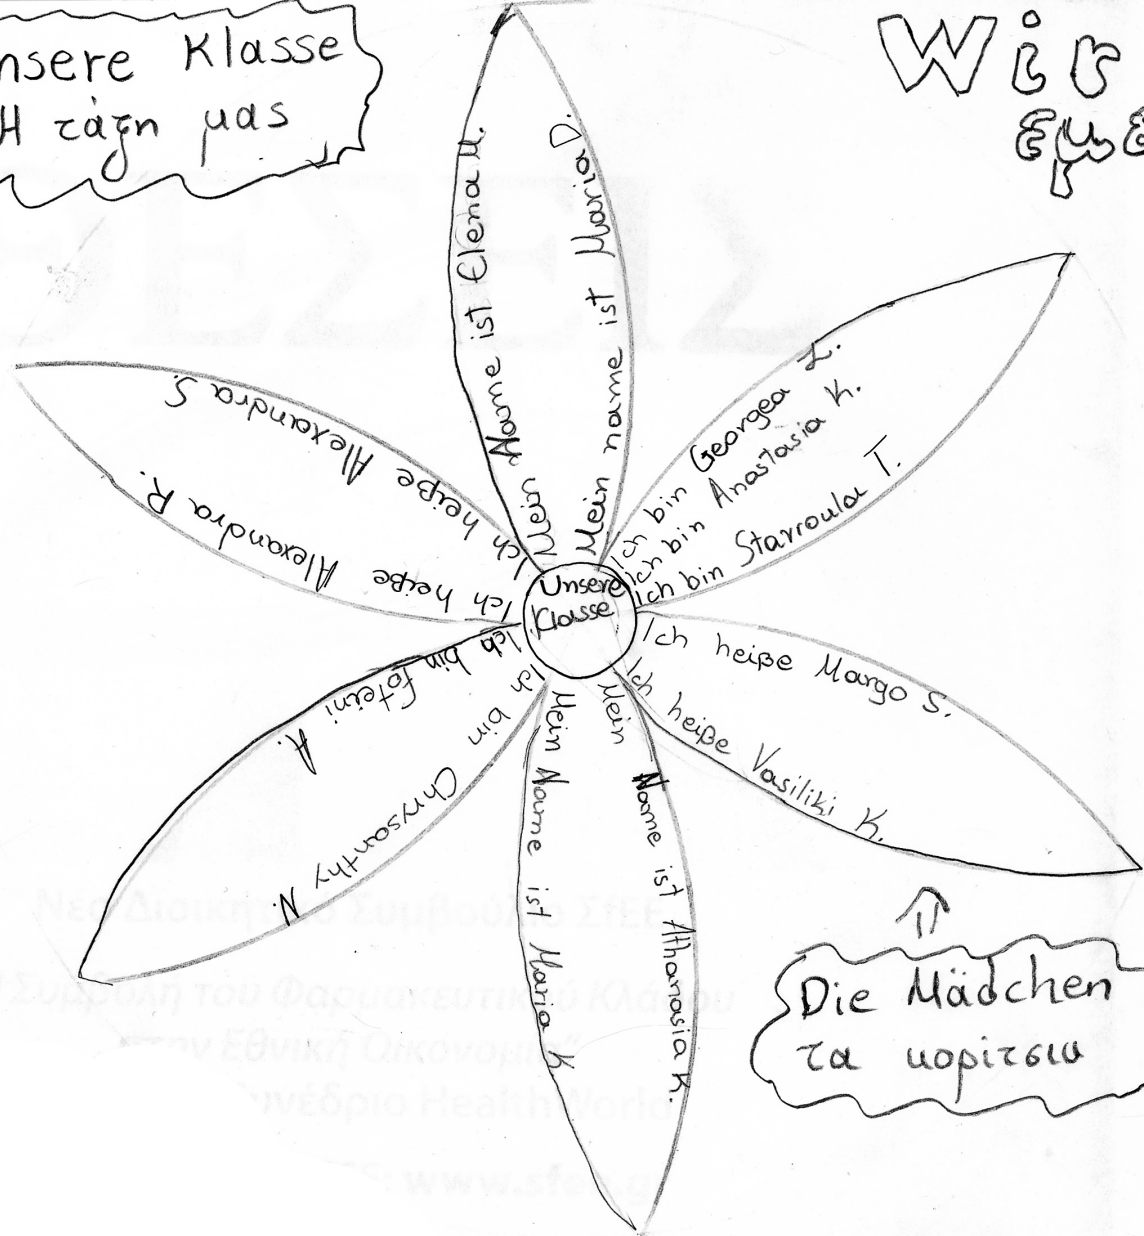 nsere Klasse
Η τάξη μας
Wir
εμε
Mein Name ist Elena M.
Mein name ist Maria D.
Ich bin Georgea L.
Ich bin Anastasia K.
Ich bin Stavroula T.
Ich heiße Margo S.
Ich heiße Vasiliki K.
Mein Name ist Athanasia K.
Mein Name ist Maria K
Ich bin Chrysanthy N.
Ich bin foteini A.
Ich heiße Alexandra R.
Ich heiße Alexandra S.
Unsere
Klasse
Die Mädchen
τα κορίτσια
ΣΕΙΣ
Νέο Διοικητικό Συμβούλιο ΣfΕΕ
Συμβολή του Φαρμακευτικού Κλάδου
Εθνική Οικονομία"
υνέδριο HealthWorld
www.sfee.g